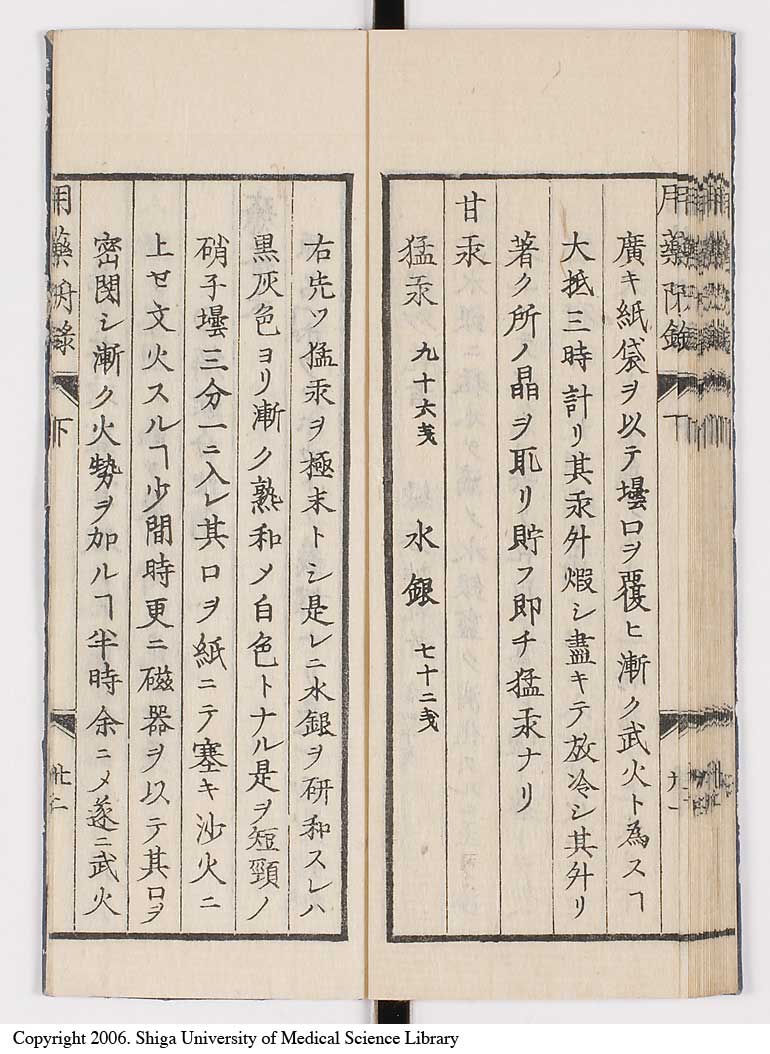 用藥附錄 下 九一
廣キ紙袋ヲ以テ壜口ヲ覆ヒ漸ク武火ト為スヿ
大抵三時計リ其汞外煆シ盡キテ放冷シ其外リ
著ク所ノ晶ヲ取リ貯フ即チ猛汞ナリ
甘汞
猛汞 九十六戔 水銀 七十二戔
右先ツ猛汞ヲ極末トシ是レニ水銀ヲ研和スレハ
黒灰色ヨリ漸ク熟和メ白色トナル是ヲ短頸ノ
硝子壜三分一ニ入レ其口ヲ紙ニテ塞キ沙火ニ
上セ文火スルヿ少間時更ニ磁器ヲ以テ其口ヲ
密閉シ漸ク火勢ヲ加ルヿ半時余ニメ遂ニ武火
用藥附錄 下 廿二
Copyright 2006. Shiga University of Medical Science Library